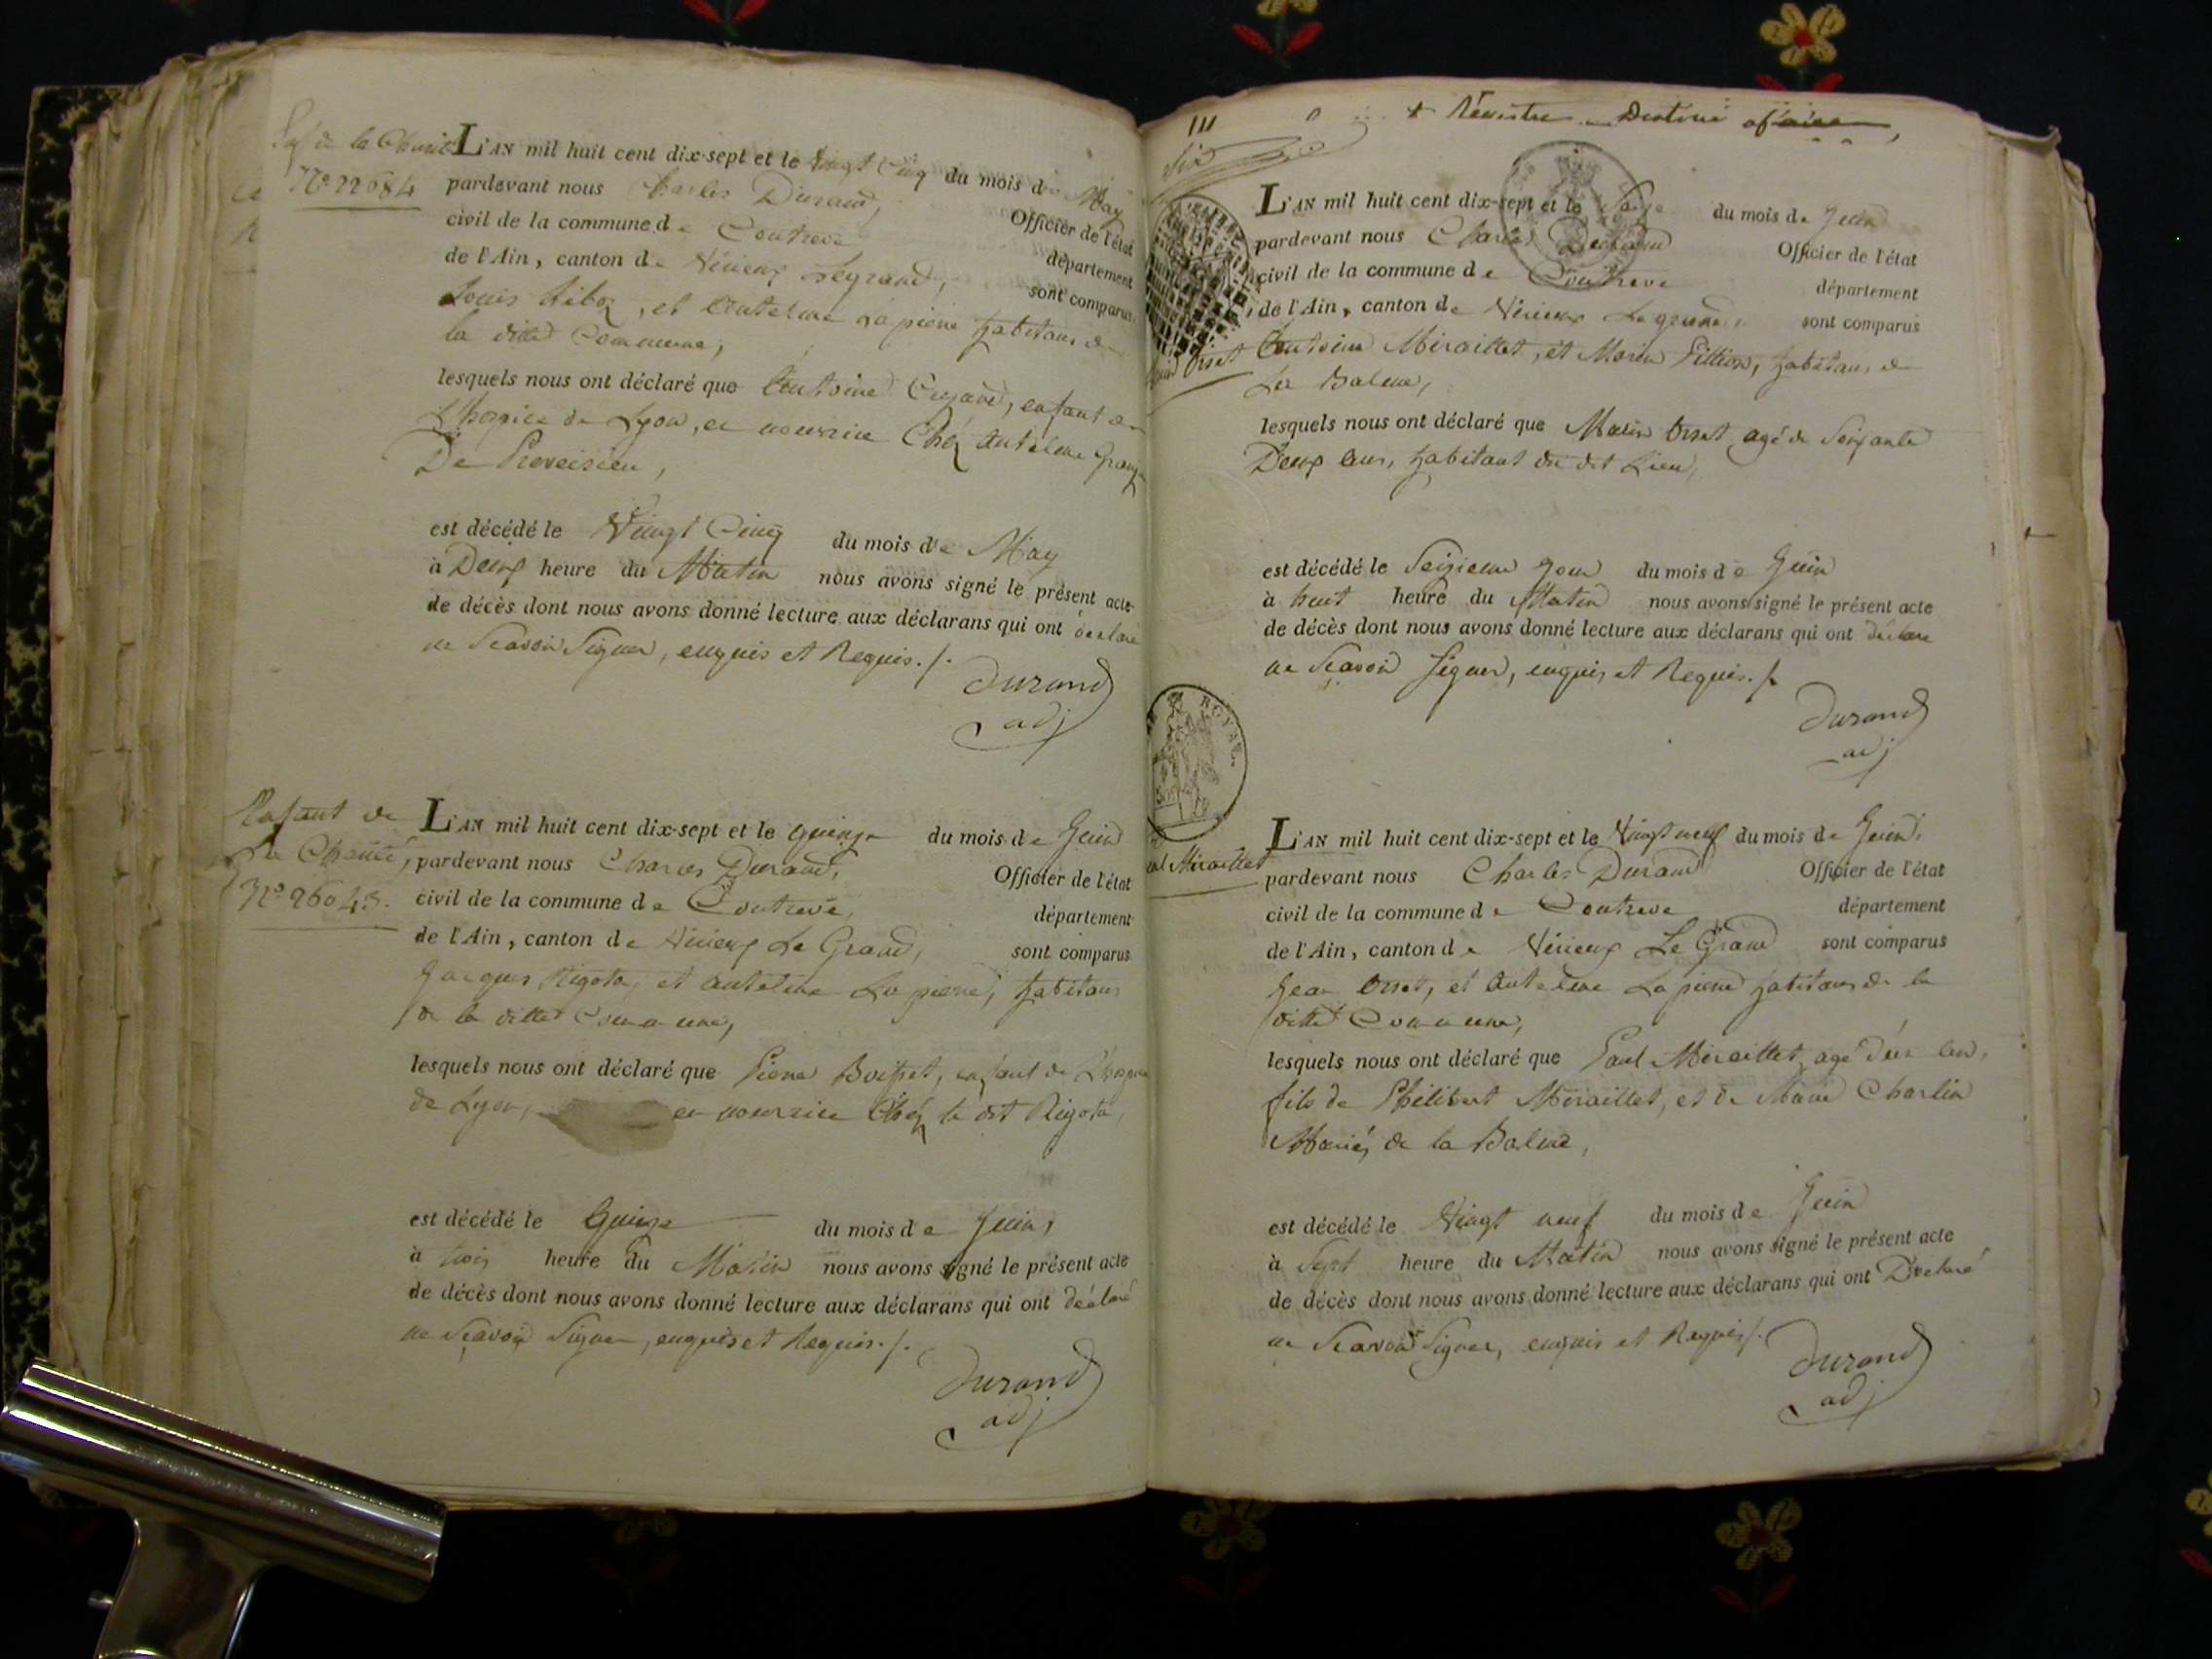 de la Charité
N° 22684
L'AN mil huit cent dix-sept et le vingt Cinq du mois de May
pardevant nous Charles Durand, Officier de l'état
civil de la commune de Contrevé département
de l'Ain, canton de Virieux Legrand, sont comparus
Louis Ribox, et Antelme Lapierre habitans de
la ditte Commune,
lesquels nous ont déclaré que Antoine, enfant de
L'hospice de Lyon, en nourrice Chéz Antelme
De Preveisieu,
est décédé le Vingt Cinq du mois de May
à Deux heure du Matin nous avons signé le présent acte
de décès dont nous avons donné lecture aux déclarans qui ont déclaré
ne Scavoir Signer, enquis et Requis./.
Durand
adj
Enfant de
la Charité,
N° 26043.
L'AN mil huit cent dix-sept et le quinze du mois de Juin
pardevant nous Charles Durand, Officier de l'état
civil de la commune de Contrevé, département
de l'Ain, canton de Virieux Le Grand, sont comparus
Jacques Rigota, et Antelme Lapierre, habitans
de la ditte Commune,
lesquels nous ont déclaré que Pierre Boisset, enfant de L'hospice
de Lyon, en nourrice Chéz le dit Rigota,
est décédé le Quinze du mois de Juin,
à trois heure du Matin nous avons signé le présent acte
de décès dont nous avons donné lecture aux déclarans qui ont déclaré
ne Scavoir Signer, enquis et Requis./.
Durand
adj
Régistre Destiné
Six
L'AN mil huit cent dix-sept et le Seize du mois de Juin
pardevant nous Charles Durand Officier de l'état
civil de la commune de Contreve département
de l'Ain, canton de Virieux Legrand, sont comparus
Orset
Antoine Miraillet, et Morin Fillion, habitans de
La Balme,
lesquels nous ont déclaré que Morin Orset agé de Soixante
Deux ans, habitant du dit Lieu,
est décédé le Seizieme jour du mois de Juin
à huit heure du Matin nous avons signé le présent acte
de décès dont nous avons donné lecture aux déclarans qui ont déclaré
ne Scavoir signer, enquis et Requis./.
Durand
adj
ROYAL
Miraillet
L'AN mil huit cent dix-sept et le Vingt neuf du mois de Juin,
pardevant nous Charles Durand Officier de l'état
civil de la commune de Contreve département
de l'Ain, canton de Virieux Le Grand sont comparus
Jean Orset, et Antelme Lapierre habitans de la
ditte Commune,
lesquels nous ont déclaré que Paul Miraillet, agé d'un an,
fils de Philibert Miraillet, et de Marie Charlin
Mariés de la Balme,
est décédé le Vingt neuf du mois de Juin
à Sept heure du Matin nous avons signé le présent acte
de décès dont nous avons donné lecture aux déclarans qui ont Déclaré
ne Scavoir Signer, enquis et Requis/.
Durand
adj